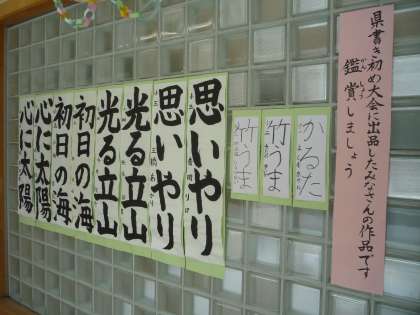 県書き初め大会に出品したみなさんの作品です
鑑賞しましょう
かんしょう
かるた
竹うま
竹うま
思いやり
思いやり
光る立山
光る立山
初日の海
初日の海
心に太陽
心に太陽